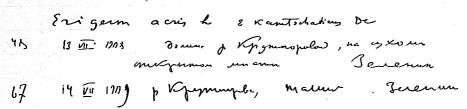 Erigeron acris L. β kamtschaticus DC
43 13 VII 1909 долина р Крутогорова, на сухом
открытом месте Зеленин
67 14 VII 1909 р Крутогорова,